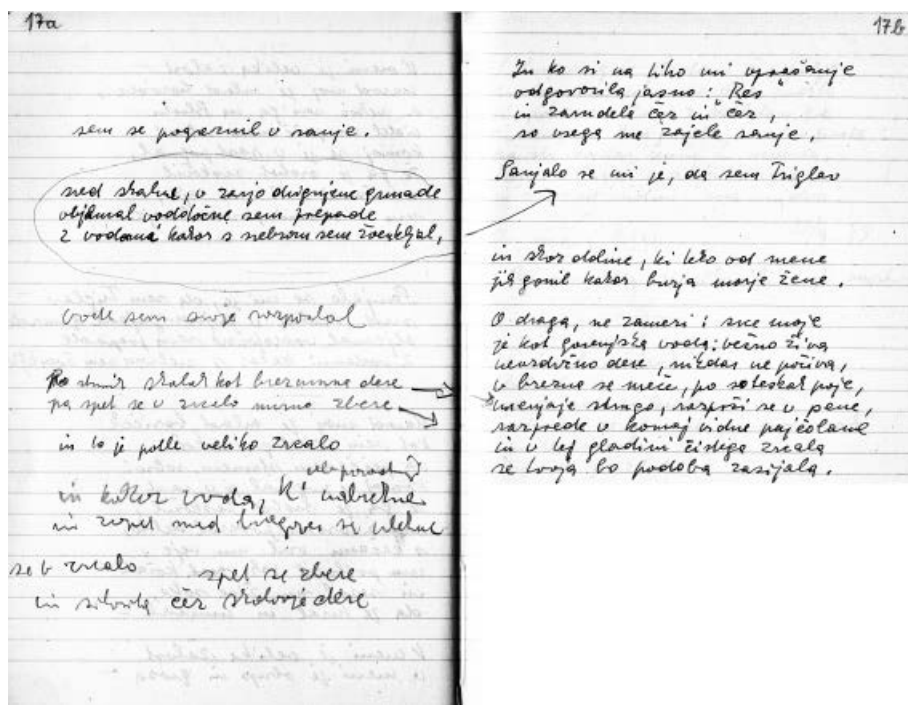 17a
sem se pogreznil v sanje.
sred skalne, v zarjo dvignjene grmade
objemal sem prepade
z vodami kakor s srebrom sem žvenkljal,
vode sem svoje razposlal
Po strmih skalah kot brezumna dere
pa spet se v zrcalo mirno zbere
in to je potlej veliko zrcalo
in kakor voda, ki nabrekne
in zopet med bregove se vlekne
se v zrcalo spet se zbere
in silovita čez skalovje dere
17b
In ko si na tiho mi vprašanje
odgovorila jasno: "Res"
in zardela čez in čez,
so vsega me zajele sanje.
Sanjalo se mi je, da sem Triglav
in skoz doline, ki kto od mene
jih gonil kakor burja morje žene.
O draga, ne zameri: srce moje
je kot gorenjska voda: večno živa
nevzdržno dere, nikdar ne počiva,
v brezna se meče, po soteskah poje,
menjaje strugo, razprši se v pene,
razprede v komaj vidne pajčolane
in v tej gladini čistega zrcala
se tvoja bo podoba zasijala.